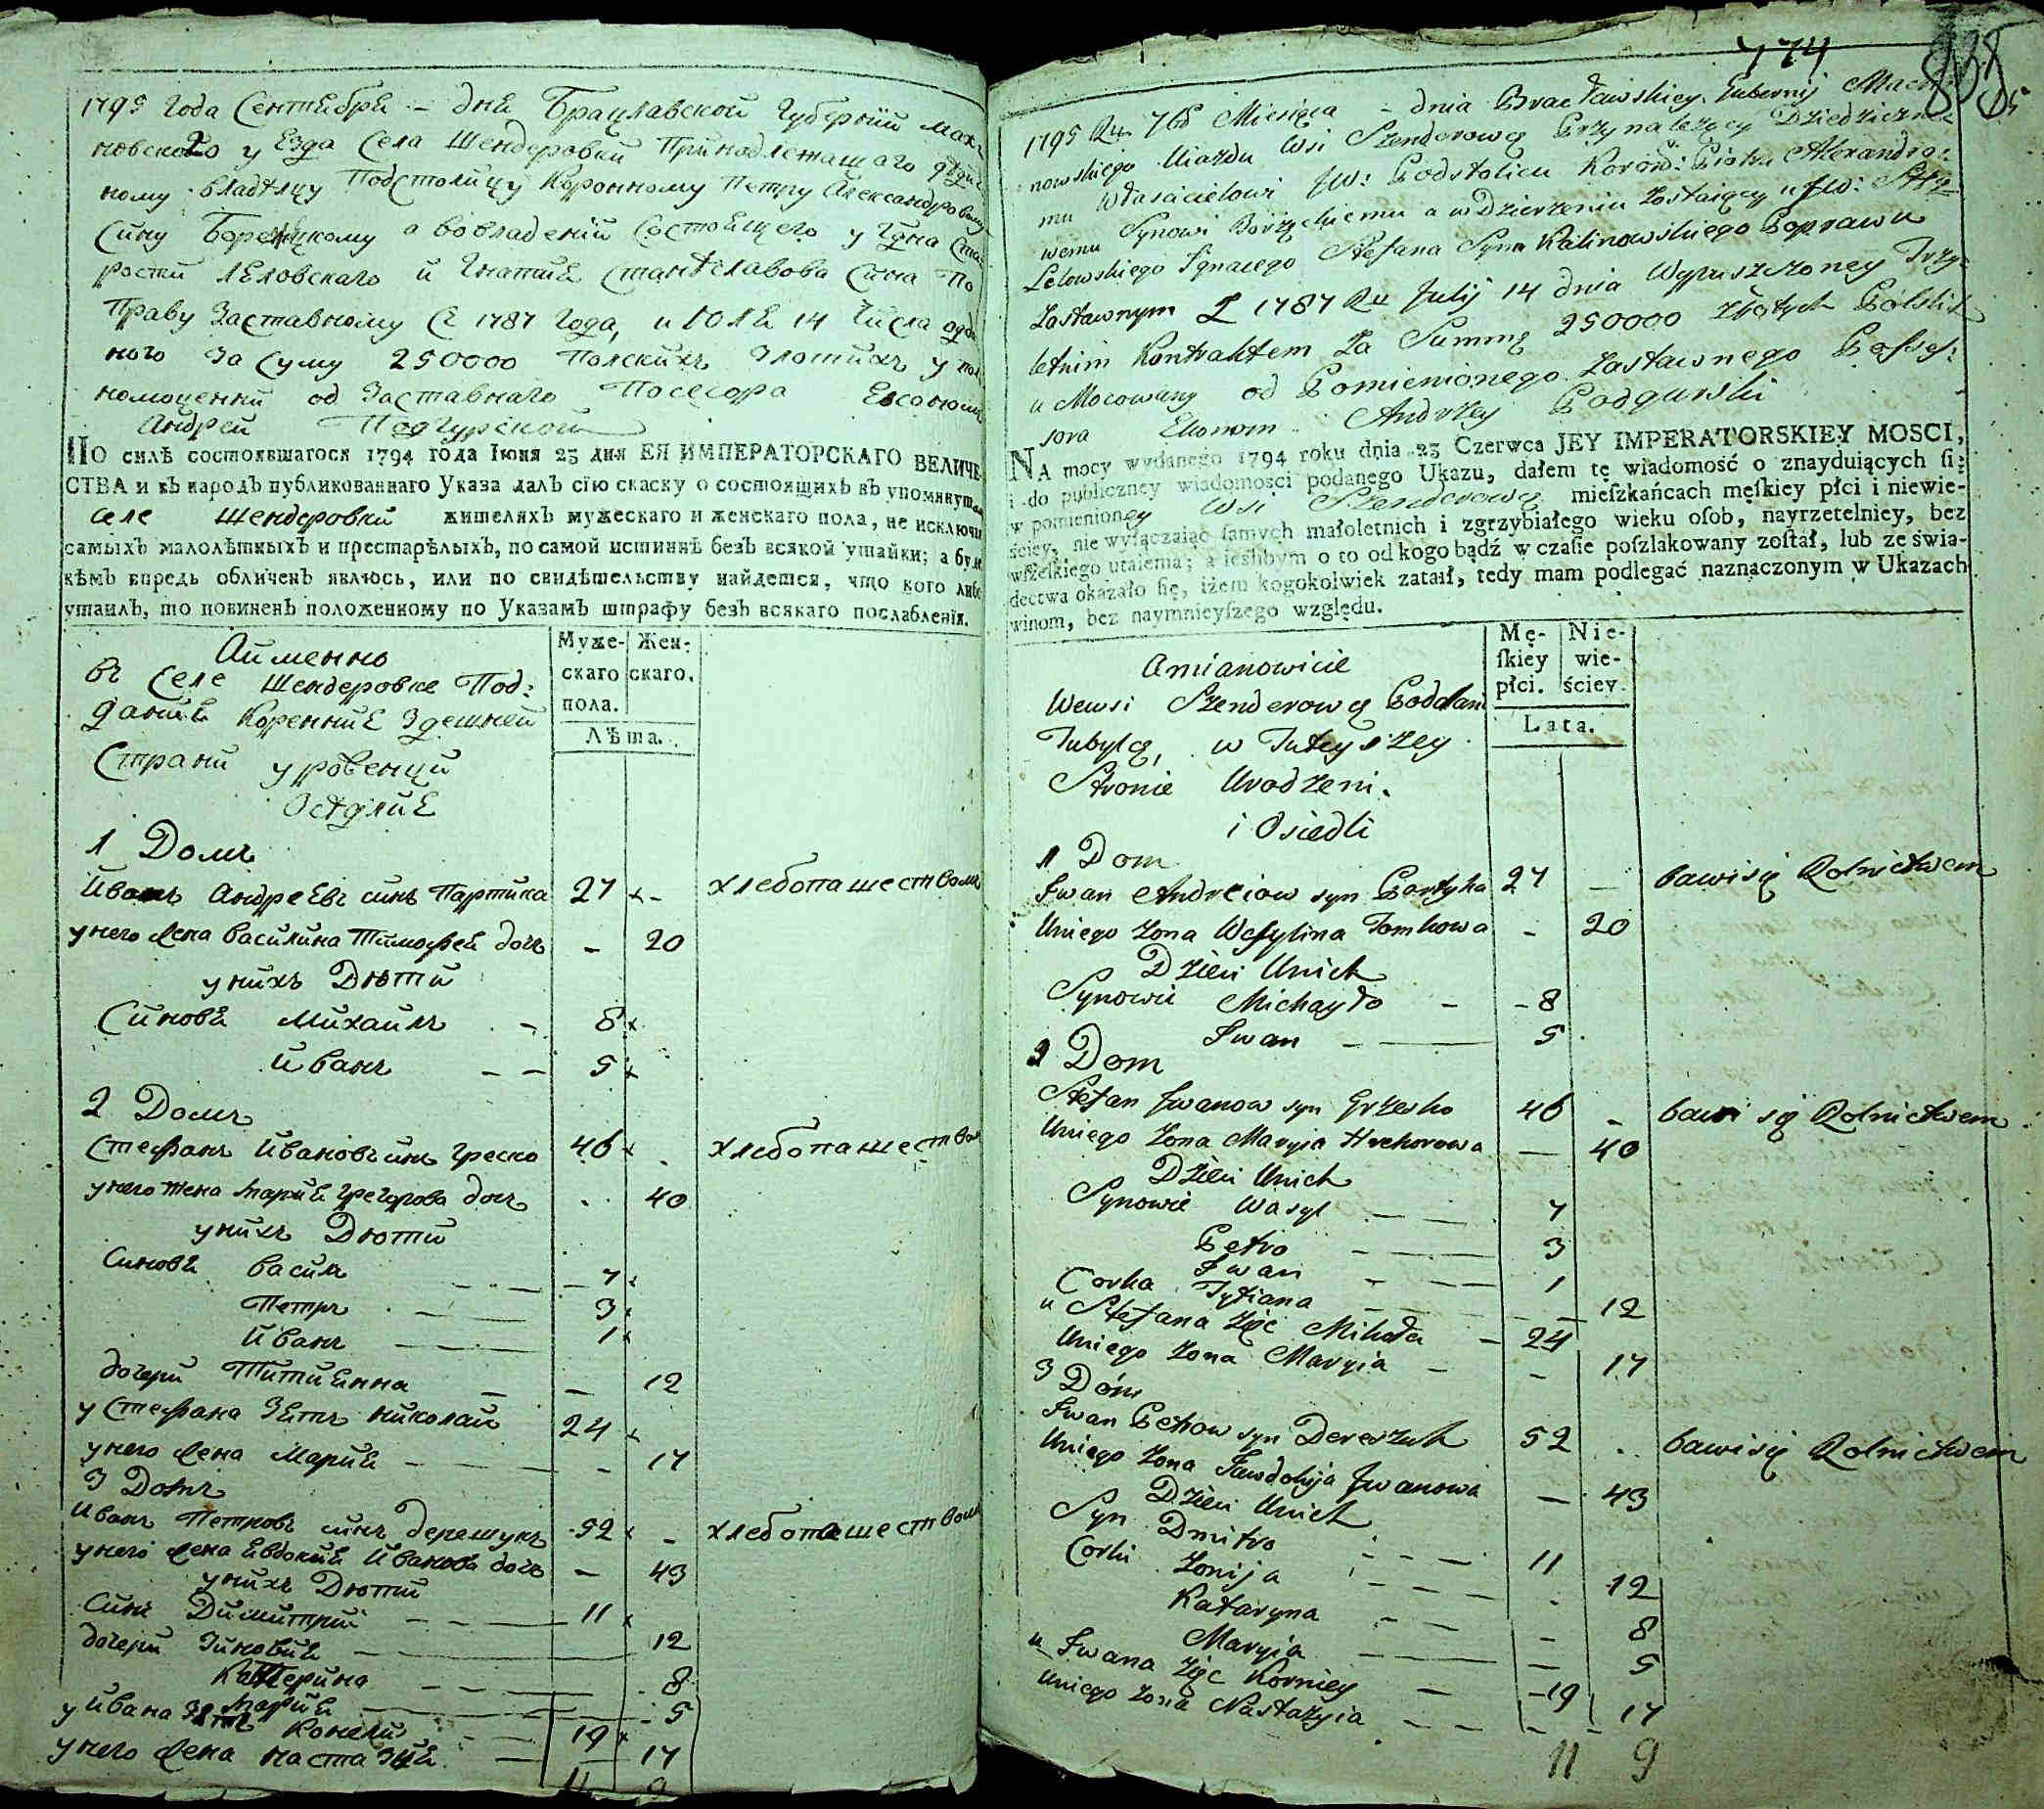 1795 Года Сентебре – дне Брацлавской Губернии Мах:
новского уезда Села Шендеровки Принадлежащаго дедич
ному владелцу Подстолицу Коронному Петру Александровому
Сину Борецкому а во владении Состоящего у Гдна Ста
рости Леловскаго и Гнатие Станеславова Сина По
Праву Заставному Съ 1787 Года, июле 14 Числа одда
ного За Суму 250000 Полскихъ Злотихъ упол
номоценни од Заставнаго Посесора Економ
Андрей Подгурской
ПО силѣ состоявшагося 1794 года Іюня 23 дня ЕЯ ИМПЕРАТОРСКАГО ВЕЛИЧЕ
СТВА и въ народъ публикованнаго Указа далъ сію скаску о состоящихъ въ упомянутом
селе Шендеровки жителяхъ мужескаго и женскаго пола, не исключая
самыхъ малолѣтныхъ и престарѣлыхъ, по самой истиннѣ безъ всякой утайки; а буде
кѣмъ впредь обличенъ явлюсь, или по свидѣтельству найдется, что кого либо
утаилъ, то повиненъ положенному по Указамъ штрафу безъ всякаго послабленія.
Аименно
въ Селе Шендеровке Под:
дание Коренние Здешней
Страни уровенци
Оседлие
Муже-
скаго
пола.
Жен-
скаго.
Лѣта.
1 Домъ
Иванъ Андреевъ синъ Партика 27 – хлебопашеством
у него жена Василина Тимофей дочъ – 20
у нихъ Дюти
Синове Михаилъ – 8
Иванъ – – 5
2 Домъ
Стефанъ Ивановъ синъ Греско 46 – хлебопашеством
у него жена Марие Грегорова дочъ – 40
у нихъ Дюти
Синове Василъ – – 7
Петръ – – 3
Иванъ – – 1
дочери Титиенна – – 12
у Стефана Зетъ Николай 24
у него жена Марие – – 17
3 Домъ
Иванъ Петровъ синъ Дерешукъ 52 – хлебопашеством
у него жена Евдокие Иванова дочъ – 43
у нихъ Дюти
Синъ Димитрий – – 11
дочери Зиновие – 12
Катерина – – 8
Марие – – 5
у Ивана Зетъ Конели – – 19
у него жена Настазие – – 17
11 9
774
1795 Ru 7bS Miesięca – dnia Bracławskiey Gubernij Mach:
nowskiego Uiazdu Wsi Szenderowcę Przynależący Dziedziczne:
mu Właścicielowi JW: Podstolicu Koron: Piotru Alexandro:
wemu Synowi Borzęckiemu a w Dzierżeniu Zostaiący u JW: Stta
Lelowskiego Ignacego Stefana Syna Kalinowskiego Poprawu
Zastawnym Z 1787 Ru Julij 14 dnia Wypuszczoney Trzy:
letnim Kontraktem Za Summę 250000 Złotych Polskich
u Mocowany od Pomienionego Zastawnego Posses:
sora Ekonom Andrzey Podgurski
NA mocy wydanego 1794 roku dnia 23 Czerwca JEY IMPERATORSKIEY MOSCI,
i do publiczney wiadomości podanego Ukazu, dałem tę wiadomość o znayduiących się
w pomienioney Wsi Szenderowcę mieſzkańcach męſkiey płci i niewie-
ściey, nie wyłączaiąc ſamych małoletnich i zgrzybiałego wieku oſob, nayrzetelniey, bez
wſzelkiego utaienia; a ieślibym o to od kogo bądź w czaſie poſzlakowany zoſtał, lub ze świa-
dectwa okazało ſię, iżem kogokolwiek zataił, tedy mam podlegać naznaczonym w Ukazach
winom, bez naymnieyſzego względu.
Amianowicie
Wewsi Szenderowcę Poddani
Tubylcę, w Tuteyszey
Stronie Urodzeni.
i Osiedli
Mę-
ſkiey
płci.
Nie-
wie-
ściey.
Lata.
1 Dom
Iwan Andreiow syn Partyka 27 – bawi się Rolnictwem
Uniego Zona Wasylina Tomkowa – 20
Dzieci Unich
Synowie Michayło – – 8
Iwan – 5
2 Dom
Stefan Iwanow syn Grzesko 46 – bawi się Rolnictwem
Uniego Zona Maryia Hrehorowa – 40
Dzieci Unich
Synowie Wasyl – – 7
Petro – – 3
Iwan – – 1
Corka Tytiana – – 12
u Stefana Zięć Mikoła – 24
Uniego Zona Maryia – – 17
3 Dom
Iwan Petrow syn Dereszuk 52 – bawi się Rolnictwem
Uniego Zona Jawdokija Iwanowa – 43
Dzieci Unich
Syn Dmitro – – 11
Corki Zonija – – 12
Kataryna – – 8
Maryia – – 5
u Iwana Zięć Korniey – – 19
Uniego Zona Nastazyia – – 17
11 9